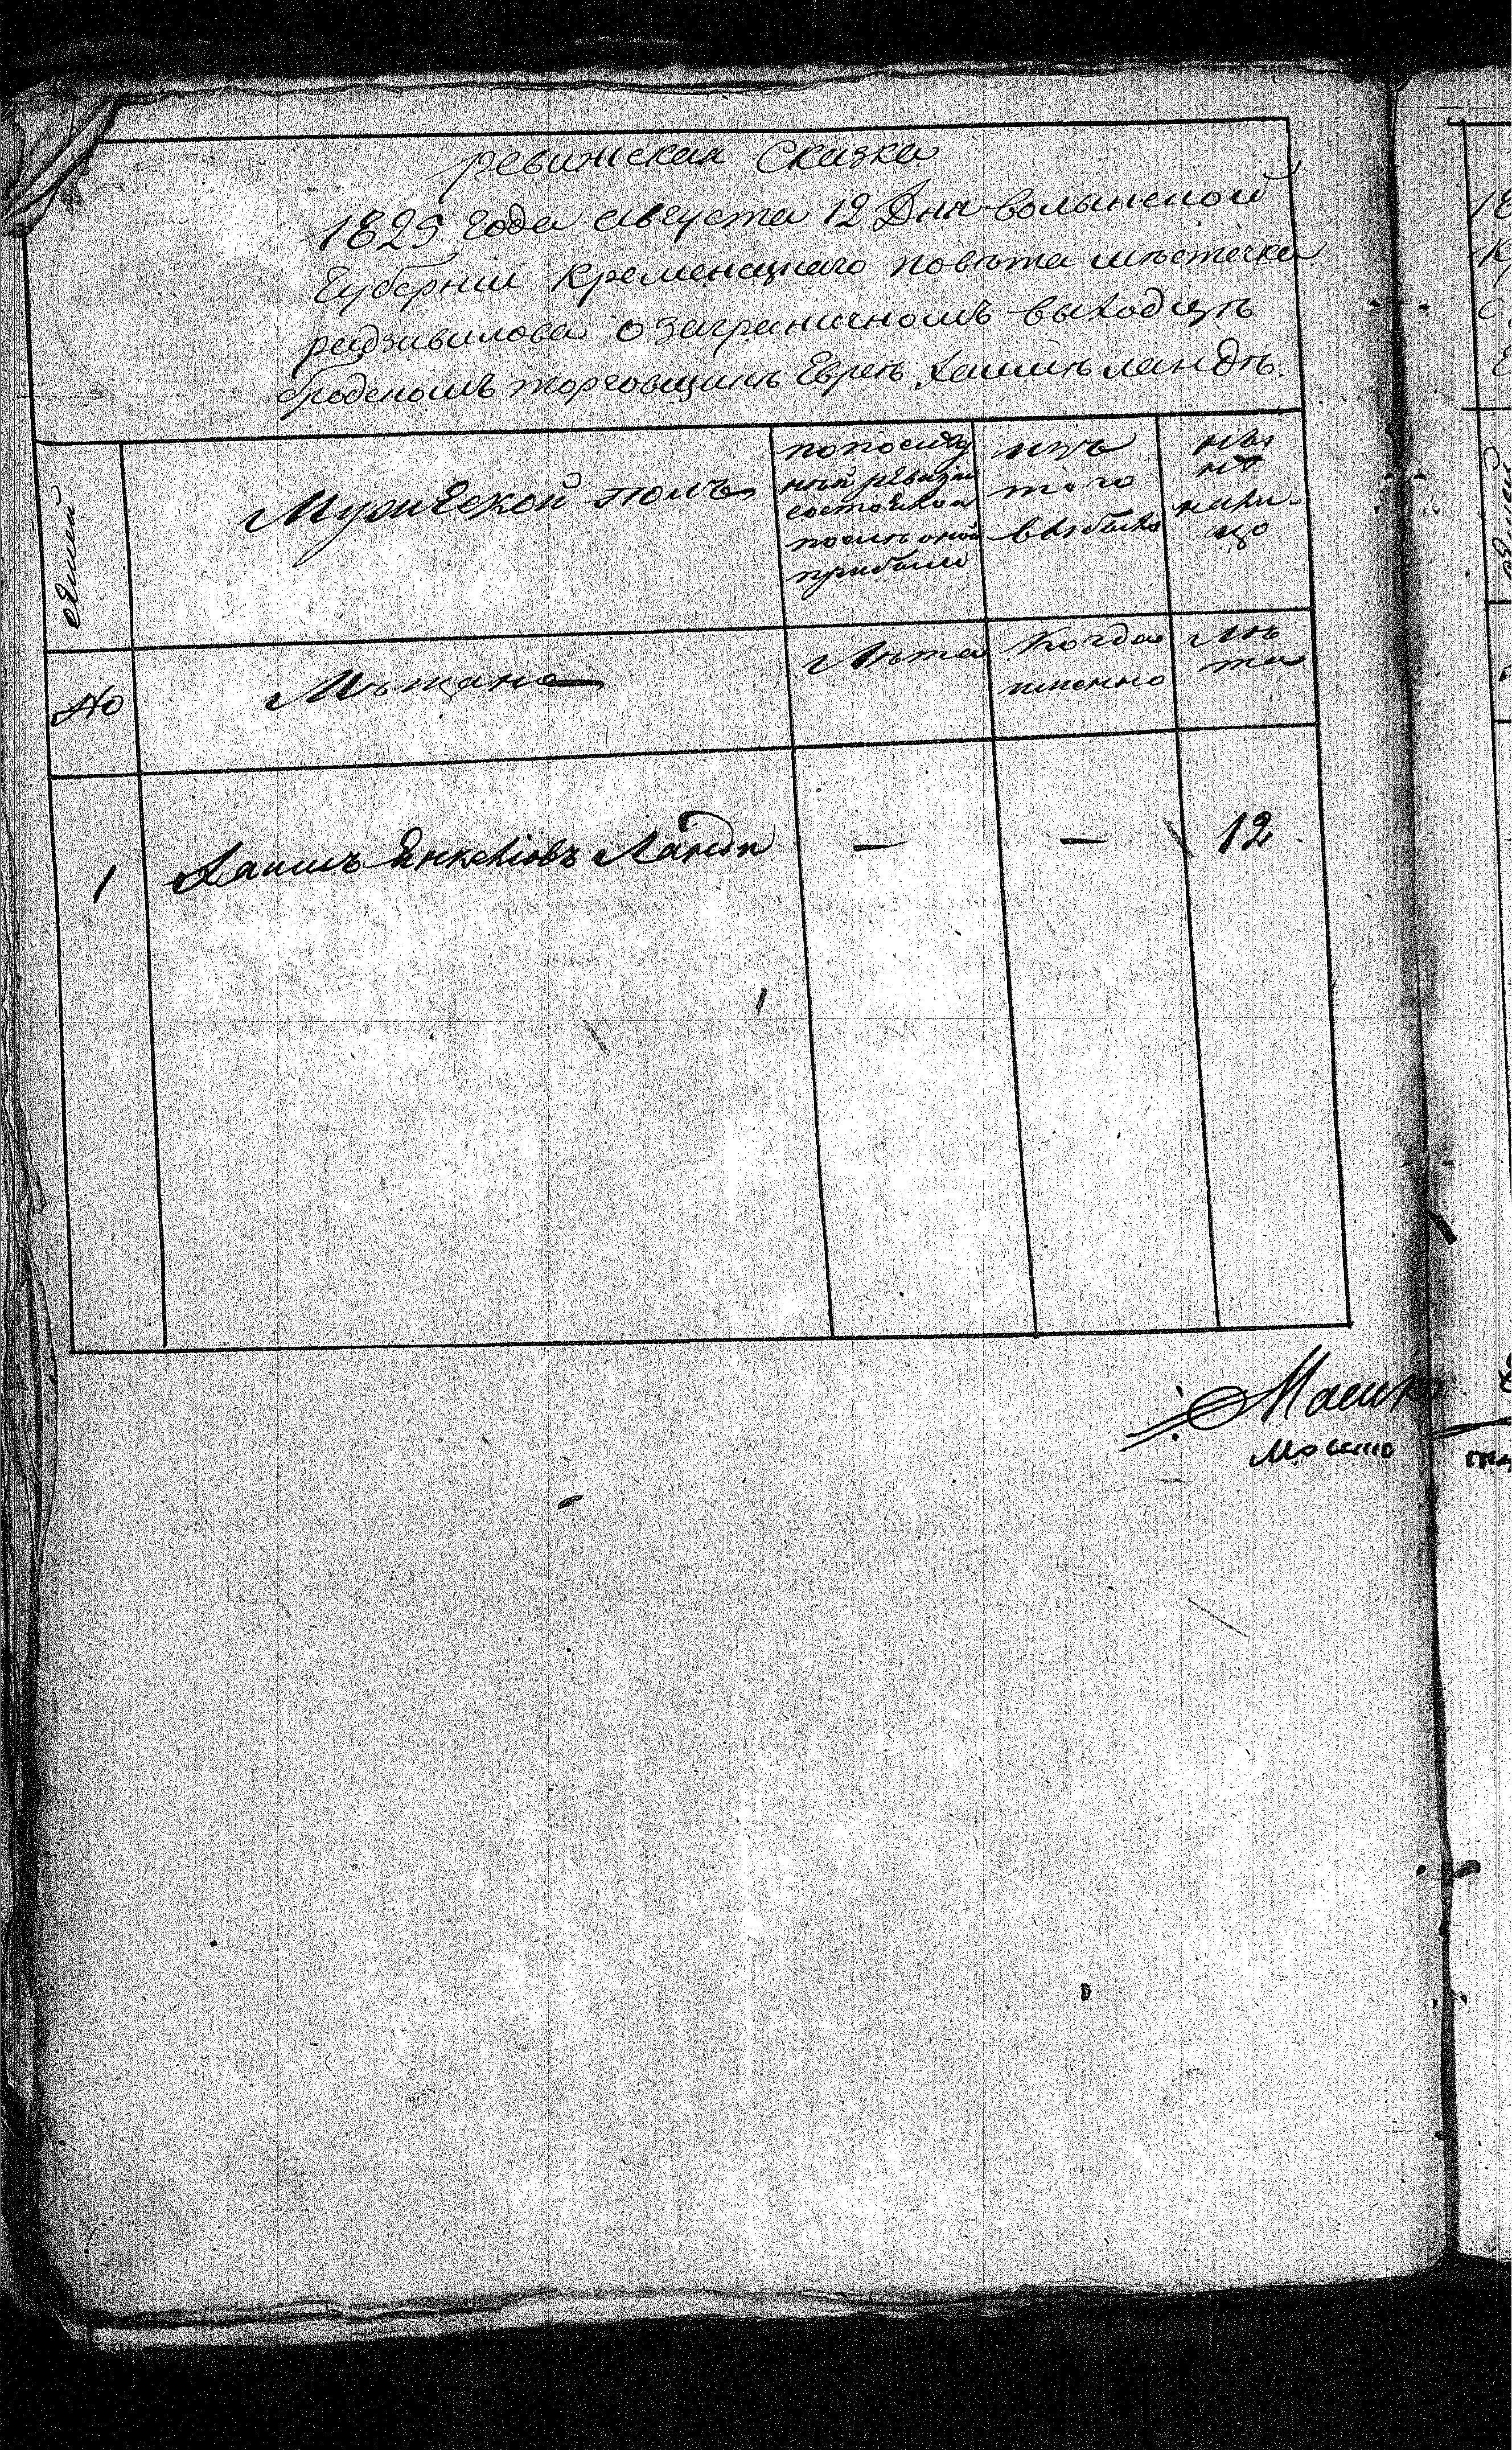 ревижская Сказка
1825 года августа 12 Дня волынской
Губерніи Кременецкаго повѣта мѣстечка
радзивилова о заграничномъ выходцѣ
бродскомъ торговщикѣ Евреѣ Хаимѣ ландѣ.
едмей
Мужеской полъ
попослѣд
ной ревизіи
состояло и
послѣ оной
прибыло
изъ
того
выбыло
ны
нѣ
нали-
цо
№
Мѣщане
Лѣта
Когда
имянно
Лѣ
та
1 Хаимъ Янкелiовъ Ланда — — 12
Мошко